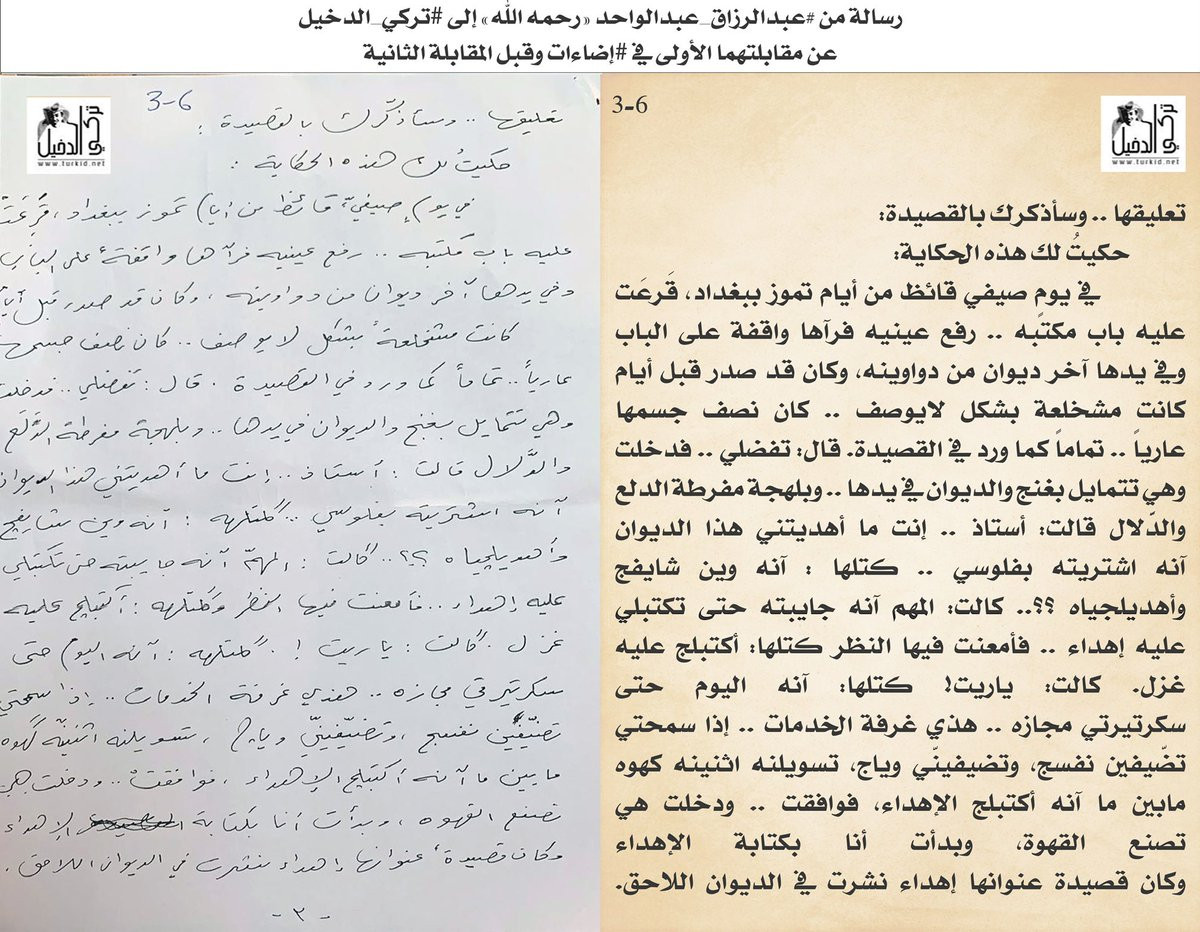 رسالة من #عبدالرزاق_عبدالواحد «رحمه الله» إلى #تركي_الدخيل
عن مقابلتهما الأولى في #إضاءات وقبل المقابلة الثانية
3-6
تركي الدخيل
www.turkid.net
تعليقها .. وسأذكرك بالقصيدة:
حكيتُ لك هذه الحكاية:
في يومٍ صيفي قائظ من أيام تموز ببغداد، قَرعَت
عليه باب مكتبه .. رفع عينيه فرآها واقفة على الباب
وفي يدها آخر ديوان من دواوينه، وكان قد صدر قبل أيام
كانت مشخلعة بشكل لايوصف .. كان نصف جسمها
عارياً .. تماماً كما ورد في القصيدة. قال: تفضلي .. فدخلت
وهي تتمايل بغنج والديوان في يدها .. وبلهجة مفرطة الدلع
والدّلال قالت: أستاذ .. إنت ما أهديتني هذا الديوان
آنه اشتريته بفلوسي .. كتلها : آنه وين شايفج
وأهديلجياه ؟؟.. كالت: المهم آنه جايبته حتى تكتبلي
عليه إهداء .. فأمعنت فيها النظر كتلها: أكتبلج عليه
غزل. كالت: ياريت! كتلها: آنه اليوم حتى
سكرتيرتي مجازه .. هذي غرفة الخدمات .. إذا سمحتي
تضّيفين نفسج، وتضيفينّي وياج، تسويلنه اثنينه كهوه
مابين ما آنه أكتبلج الإهداء، فوافقت .. ودخلت هي
تصنع القهوة، وبدأت أنا بكتابة الإهداء
وكان قصيدة عنوانها إهداء نشرت في الديوان اللاحق.
3-6
تركي الدخيل
www.turkid.net
تعليقها .. وسأذكّرك بالقصيدة :
حكيتُ لك هذه الحكاية :
في يومٍ صيفيّ قائظ من أيام تموز ببغداد ، قَرَعَتْ
عليه باب مكتبه .. رفع عينيه فرآها واقفةً على الباب
وفي يدها آخر ديوان من دواوينه ، وكان قد صدر قبل أيا
كانت مشخلعةً بشكل لا يوصف .. كان نصف جسمها
عارياً .. تماماً كما ورد في القصيدة . قال : تفضلي .. فدخلت
وهي تتمايل بغنج والديوان في يدها .. وبلهجة مفرطة الدّلَع
والدَّلال قالت : أستاذ .. إنت ما أهديتني هذا الديوان
آنه اشتريته بفلوسي .. گلتلها : آنه وين شايفچ
وأهديلچياه ؟؟ .. گالت : المهمّ آنه جايبته حتى تكتبلي
عليه إهداء .. فأمعنت فيها النظر وگلتلها : أكتبلچ عليه
غزل . گالت : ياريت ! . گلتلها : آنه اليوم حتى
سكرتيرتي مجازه .. هذي غرفة الخدمات .. إذا سمحتي
تضيّفين نفسچ ، وتضيّفينّي وياچ ، تسويلنه اثنينّه گهوه
مابين ما آنه أكتبلچ الإهداء ، فوافقتْ .. ودخلت هي
تصنع القهوه ، وبدأت أنا بكتابة الإهداء
وكان قصيدةً عنوانها إهداء نشرت في الديوان اللاحق .
- ٣ -